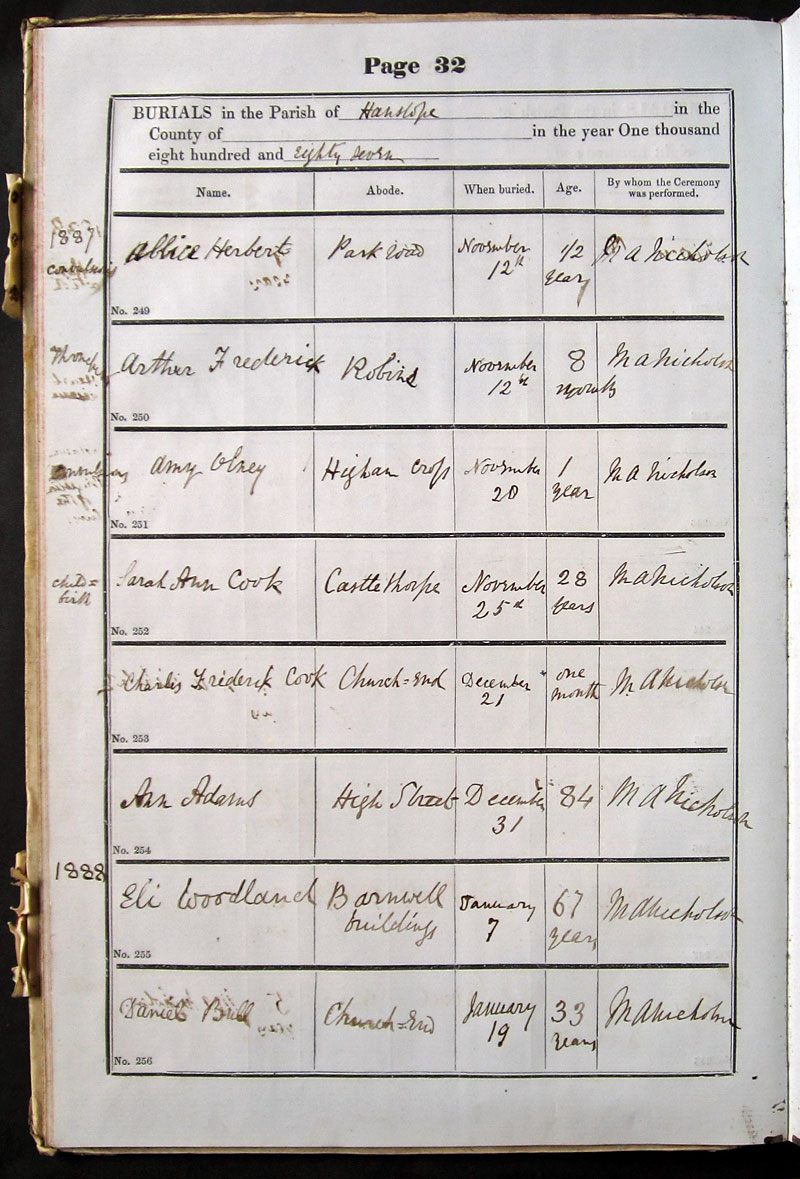 Page 32
BURIALS in the Parish of Hanslope in the
County of in the year One thousand
eight hundred and Eighty Seven
Name. Abode. When buried. Age. By whom the Ceremony
was performed.
1887
Allice Herbert Park road November 12 M A Nicholson
12th years
No. 249
Arther Frederick Robins November 8 M A Nicholson
12th months
No. 250
Amy Olney Higham Cross November 1 M A Nicholson
20 year
No. 251
child=
birth
Sarah Ann Cook Castlethorpe November 28 M A Nicholson
25th years
No. 252
Charles Frederick Cook Church=End December one M A Nicholson
21 month
No. 253
Ann Adams High Street December 84 M A Nicholson
31
No. 254
1888
Eli Woodland Barnwell January 67 M A Nicholson
buildings 7 years
No. 255
Daniel Bull Church=End January 33 M A Nicholson
19 years
No. 256